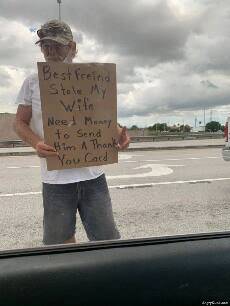 Best freind
Stole My
Wife
Need Money
to Send
Him A Thank
You Card